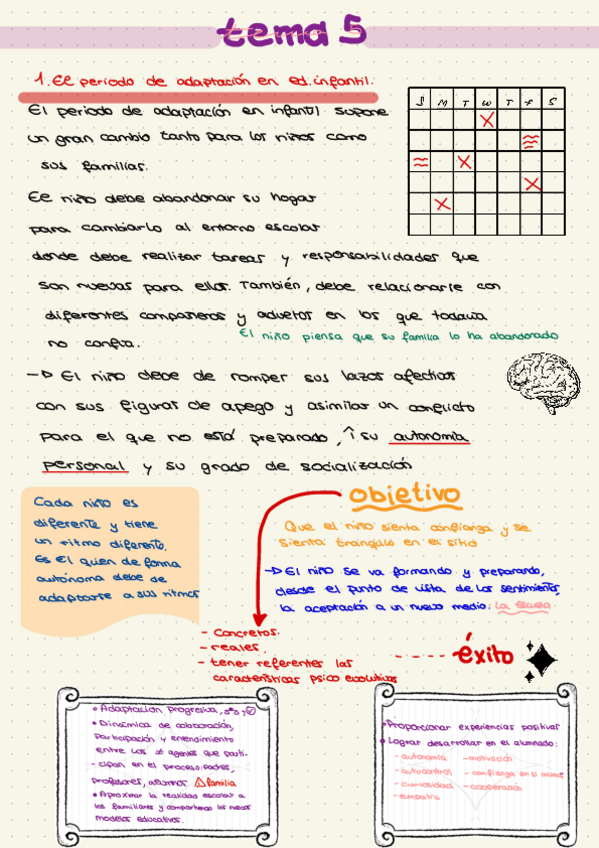 tema 5
1. El periodo de adaptación en ed. infantil.
El periodo de adaptación en infantil supone
un gran cambio tanto para los niños como
sus familias.
S M T W T F S
El niño debe abandonar su hogar
para cambiarlo al entorno escolar
donde debe realizar tareas y responsabilidades que
son nuevas para ellos. También, debe relacionarse con
diferentes compañeros y adultos en los que todavía
no confía.
El niño piensa que su familia lo ha abandonado
→ El niño debe de romper sus lazos afectivos
con sus figuras de apego y asimilar un conflicto
para el que no está preparado, ↑ su autonomía
personal y su grado de socialización
Cada niño es
diferente y tiene
un ritmo diferente.
Es él quien de forma
autónoma debe de
adaptarse a sus ritmos
objetivo
Que el niño sienta confianza y se
sienta tranquilo en el sitio
→ El niño se va formando y preparando,
desde el punto de vista de los sentimientos,
la aceptación a un nuevo medio: la escuela
- Concretos.
- reales.
- tener referentes las
características psico evolutivas
éxito
• Adaptación progresiva,
• Dinámica de colaboración,
participación y entendimiento
entre los ≠ agentes que parti-
- cipan en el proceso: padres,
profesores, alumnos ⚠ familia
• Aproximar la realidad escolar a
los familiares y compartendo los nuevos
modelos educativos.
• Proporcionar experiencias positivas
• Lograr desarrollar en el alumnado:
- autonomía - motivación
- autocontrol - confianza en sí mismos
- curiosidad - cooperación
- empatía